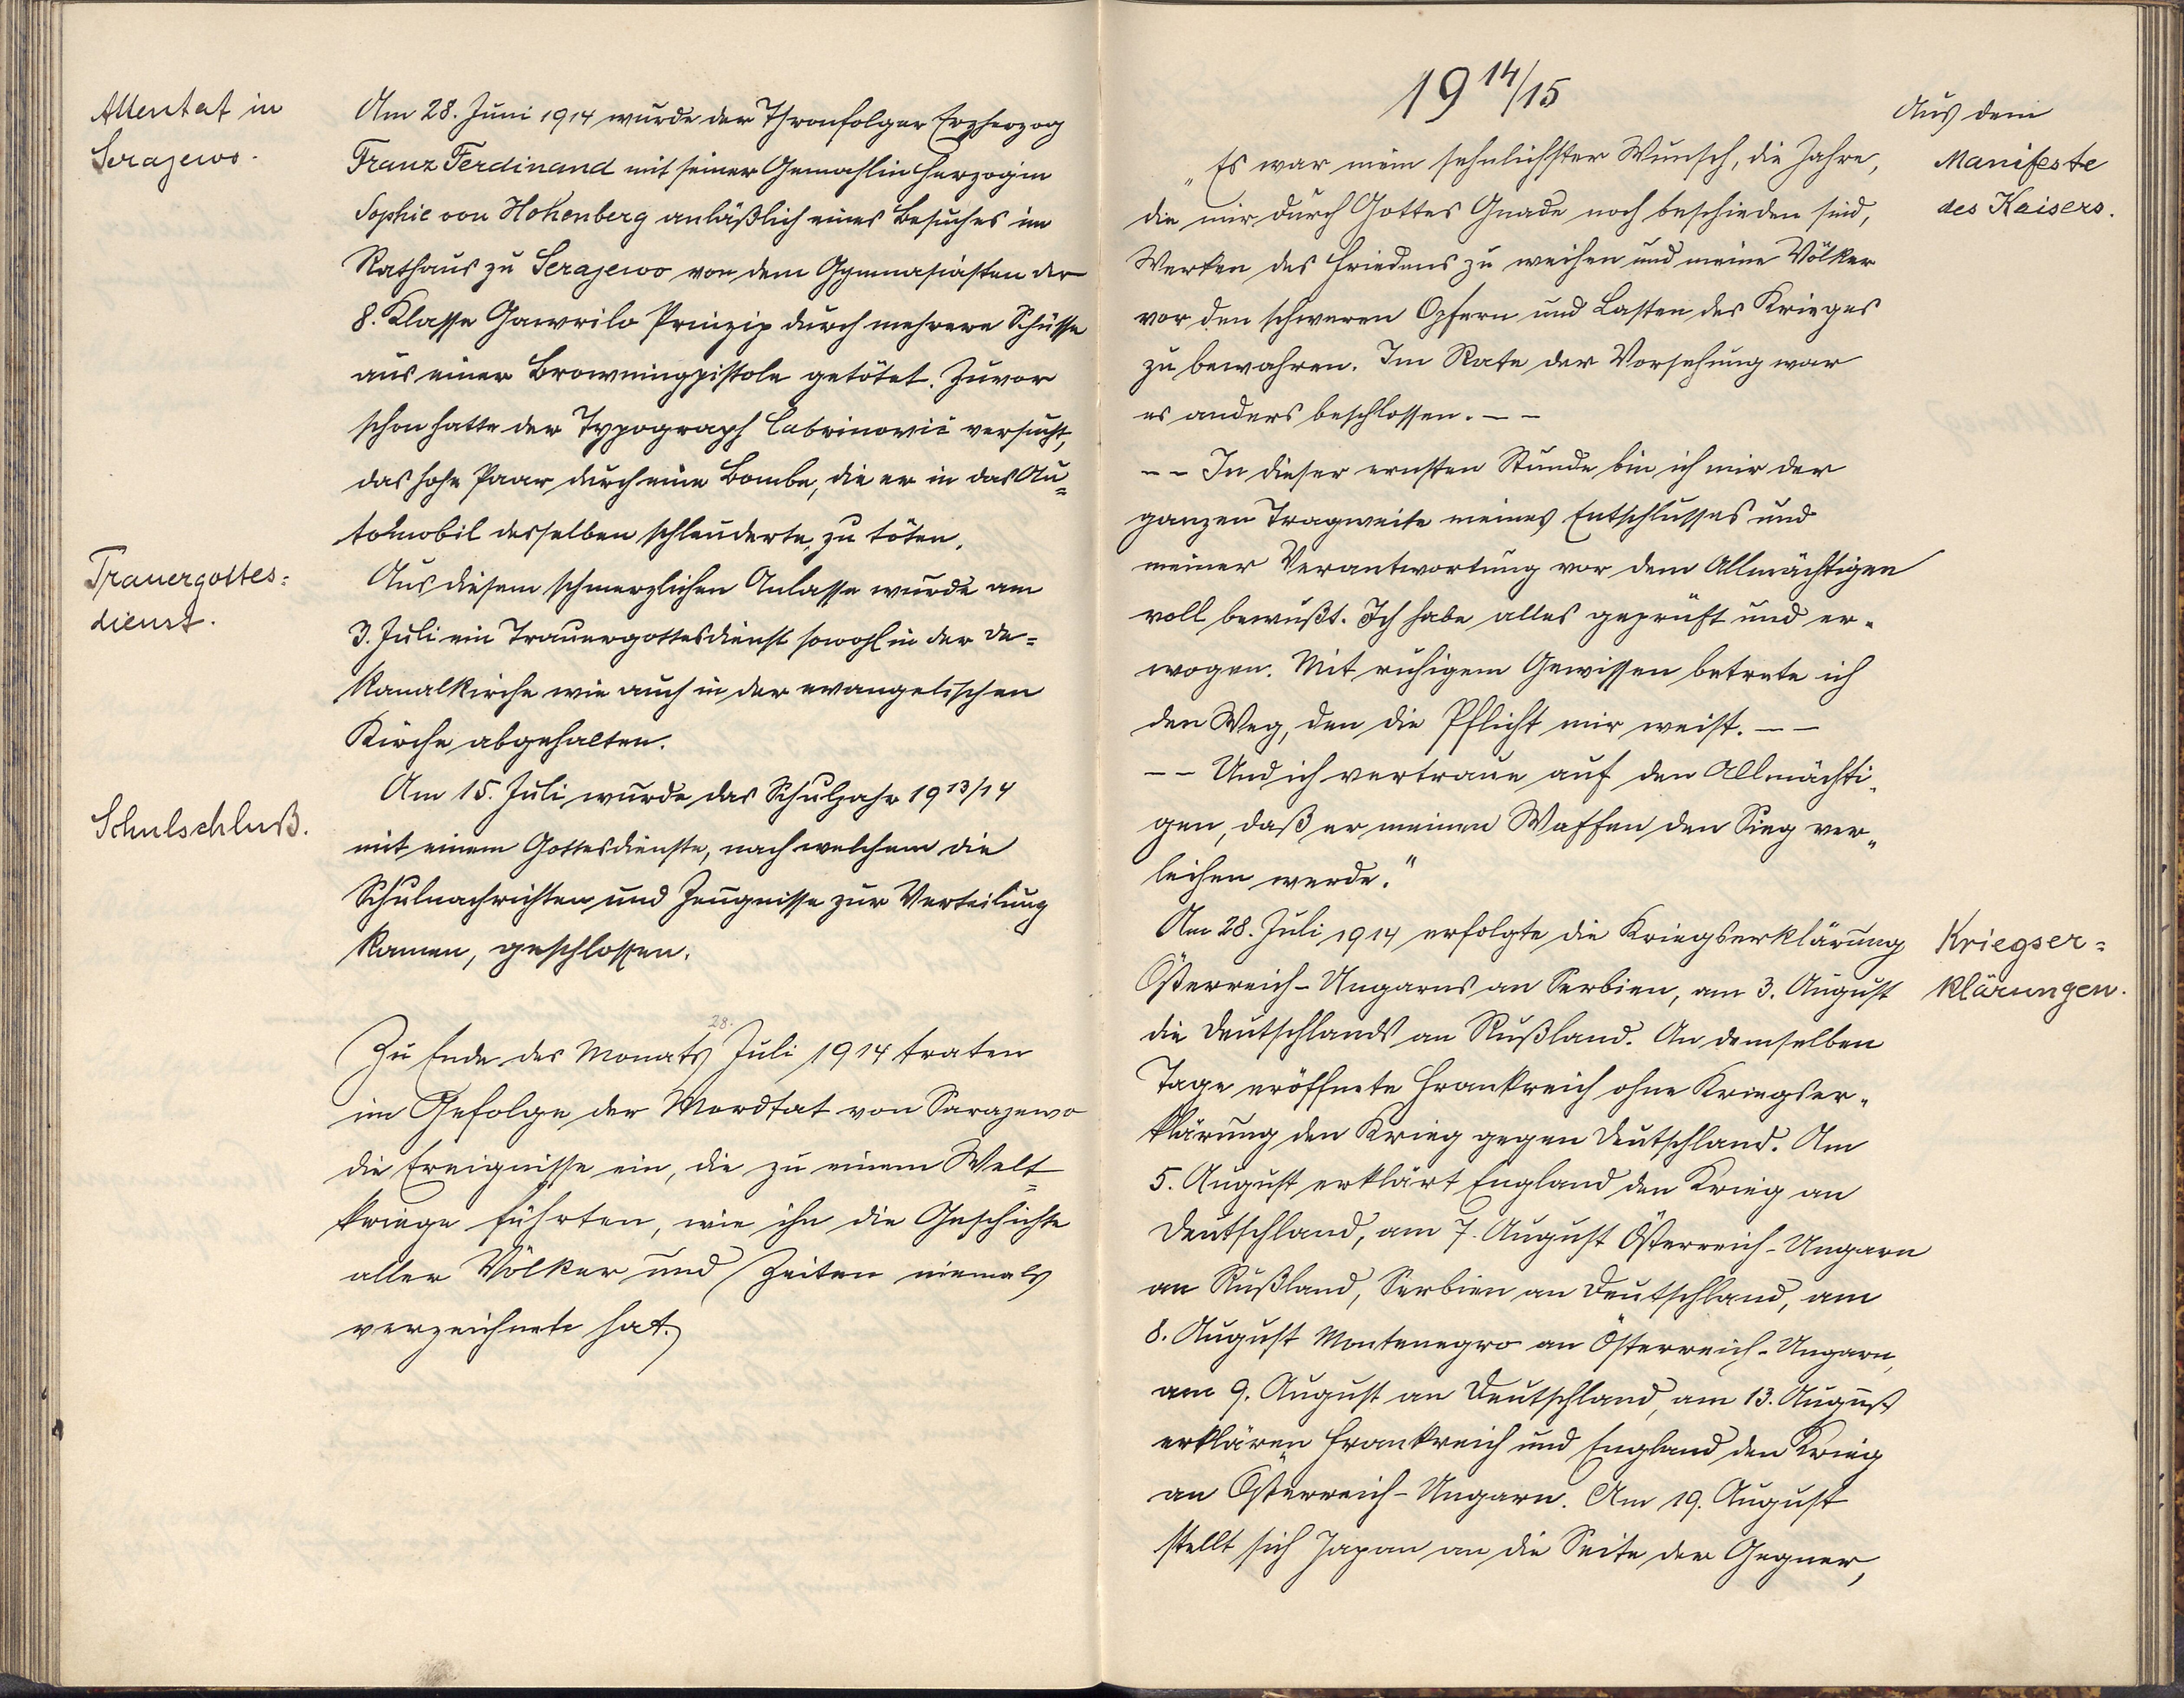 Attentat in
Serajewo.
Am 28. Juni 1914 wurde der Thronfolger Erzherzog
Franz Ferdinand mit seiner Gemahlin Herzogin
Sophie von Hohenberg anläßlich eines Besuches im
Rathaus zu Serajewo von dem Gymnasiasten der
8. Klasse Gawrilo Prinzip durch mehrere Schüsse
aus einer Browningpistole getötet. Zuvor
schon hatte der Typograph Cabrinović versucht,
das hohe Paar durch eine Bombe, die er in das Au=
tomobil desselben schleuderte, zu töten.
Trauergottes=
dienst.
Aus diesem schmerzlichen Anlasse wurde am
3. Juli ein Trauergottesdienst sowohl in der De=
kanalkirche wie auch in der evangelischen
Kirche abgehalten.
Schulschluß.
Am 15. Juli wurde das Schuljahr 1913/14
mit einem Gottesdienste, nach welchem die
Schulnachrichten und Zeugnisse zur Verteilung
kamen, geschlossen.
28.
Zu Ende des Monats Juli 1914 traten
im Gefolge der Mordtat von Sarajewo
die Ereignisse ein, die zu einem Welt=
kriege führten, wie ihn die Geschichte
aller Völker und Zeiten niemals
verzeichnete hat.
1914/15
Aus dem
Manifeste
des Kaisers.
„Es war mein sehnlichster Wunsch, die Jahre,
die mir durch Gottes Gnade noch beschieden sind,
Werken des Friedens zu weihen und meine Völker
vor den schweren Opfern und Lasten des Krieges
zu bewahren. Im Rate der Vorsehung war
es anders beschlossen. – –
– – In dieser ernsten Stunde bin ich mir der
ganzen Tragweite meines Entschlusses und
meiner Verantwortung vor dem Allmächtigen
voll bewußt. Ich habe alles geprüft und er=
wogen. Mit ruhigem Gewissen betrete ich
den Weg, den die Pflicht mir weist. – –
– – Und ich vertraue auf den Allmächti=
gen, daß er meinen Waffen den Sieg ver=
leihen werde.“
Kriegser=
klärungen.
Am 28. Juli 1914 erfolgte die Kriegserklärung
Österreich-Ungarns an Serbien, am 3. August
die Deutschlands an Rußland. An demselben
Tage eröffnete Frankreich ohne Kriegser=
klärung den Krieg gegen Deutschland. Am
5. August erklärt England den Krieg an
Deutschland, am 7. August Österreich-Ungarn
an Rußland, Serbien an Deutschland, am
8. August Montenegro an Österreich-Ungarn,
am 9. August an Deutschland, am 13. August
erklären Frankreich und England den Krieg
an Österreich-Ungarn. Am 19. August
stellt sich Japan an die Seite der Gegner,